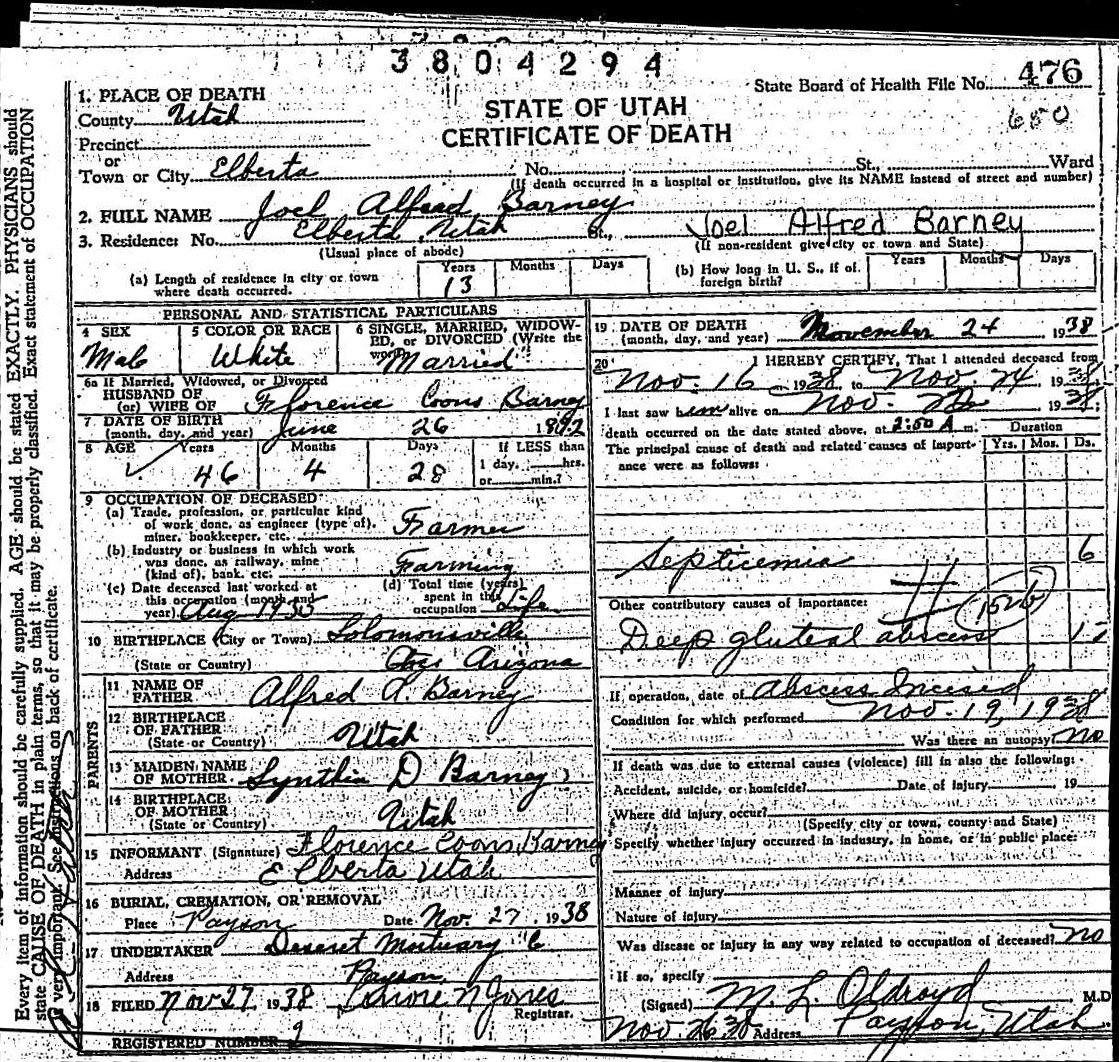 3804294
State Board of Health File No. 476
650
STATE OF UTAH
CERTIFICATE OF DEATH
1. PLACE OF DEATH
County Utah
Precinct
or
Town or City Elberta No. St., Ward
(If death occurred in a hospital or institution, give its NAME instead of street and number)
2. FULL NAME Joel Alfred Barney
3. Residence: No. Elberta, Utah St., Joel Alfred Barney
(Usual place of abode) (If non-resident give city or town and State)
(a) Length of residence in city or town where death occurred. Years 13 Months Days
(b) How long in U. S., if of foreign birth? Years Months Days
PERSONAL AND STATISTICAL PARTICULARS
4 SEX Male
5 COLOR OR RACE White
6 SINGLE, MARRIED, WIDOWED, or DIVORCED (Write the word) Married
6a If Married, Widowed, or Divorced
HUSBAND OF
(or) WIFE OF Florence Coons Barney
7 DATE OF BIRTH
(month, day, and year) June 26 1892
8 AGE Years 46 Months 4 Days 28
If LESS than
1 day, hrs.
or min.?
9 OCCUPATION OF DECEASED
(a) Trade, profession, or particular kind
of work done, as engineer (type of),
miner, bookkeeper, etc. Farmer
(b) Industry or business in which work
was done, as railway, mine
(kind of), bank, etc. Farming
(c) Date deceased last worked at
this occupation (month and
year) Aug
(d) Total time (years)
spent in this
occupation Life
10 BIRTHPLACE (City or Town) Solomonsville
(State or Country) Arizona
PARENTS
11 NAME OF
FATHER Alfred A. Barney
12 BIRTHPLACE
OF FATHER
(State or Country) Utah
13 MAIDEN NAME
OF MOTHER Synthia D Barney
14 BIRTHPLACE
OF MOTHER
(State or Country) Utah
15 INFORMANT (Signature) Florence Coons Barney
Address Elberta Utah
16 BURIAL, CREMATION, OR REMOVAL
Place Payson Date Nov. 27, 1938
17 UNDERTAKER Deseret Mortuary Co
Address Payson
18 FILED Nov 27 1938 N Jones
Registrar.
REGISTERED NUMBER 9
19 DATE OF DEATH
(month, day, and year) November 24 1938
20 I HEREBY CERTIFY, That I attended deceased from
Nov. 16 1938, to Nov. 24, 1938
I last saw him alive on Nov. 1938,
death occurred on the date stated above, at 2:00 A m.
Duration
The principal cause of death and related causes of importance were as follows:
Yrs. Mos. Ds.
Septicemia 6
Other contributory causes of importance:
Deep gluteal abscess
If operation, date of Abscess Incised
Condition for which performed Nov. 19, 1938
Was there an autopsy? No
If death was due to external causes (violence) fill in also the following:
Accident, suicide, or homicide? Date of injury 19
Where did injury occur?
(Specify city or town, county and State)
Specify whether injury occurred in industry, in home, or in public place:
Manner of injury
Nature of injury
Was disease or injury in any way related to occupation of deceased? No
If so, specify
(Signed) M. L. Oldroyd M.D
Nov. 26 38 Address Payson, Utah
Every item of information should be carefully supplied. AGE should be stated EXACTLY. PHYSICIANS should
state CAUSE OF DEATH in plain terms, so that it may be properly classified. Exact statement of OCCUPATION
is very important. See instructions on back of certificate.